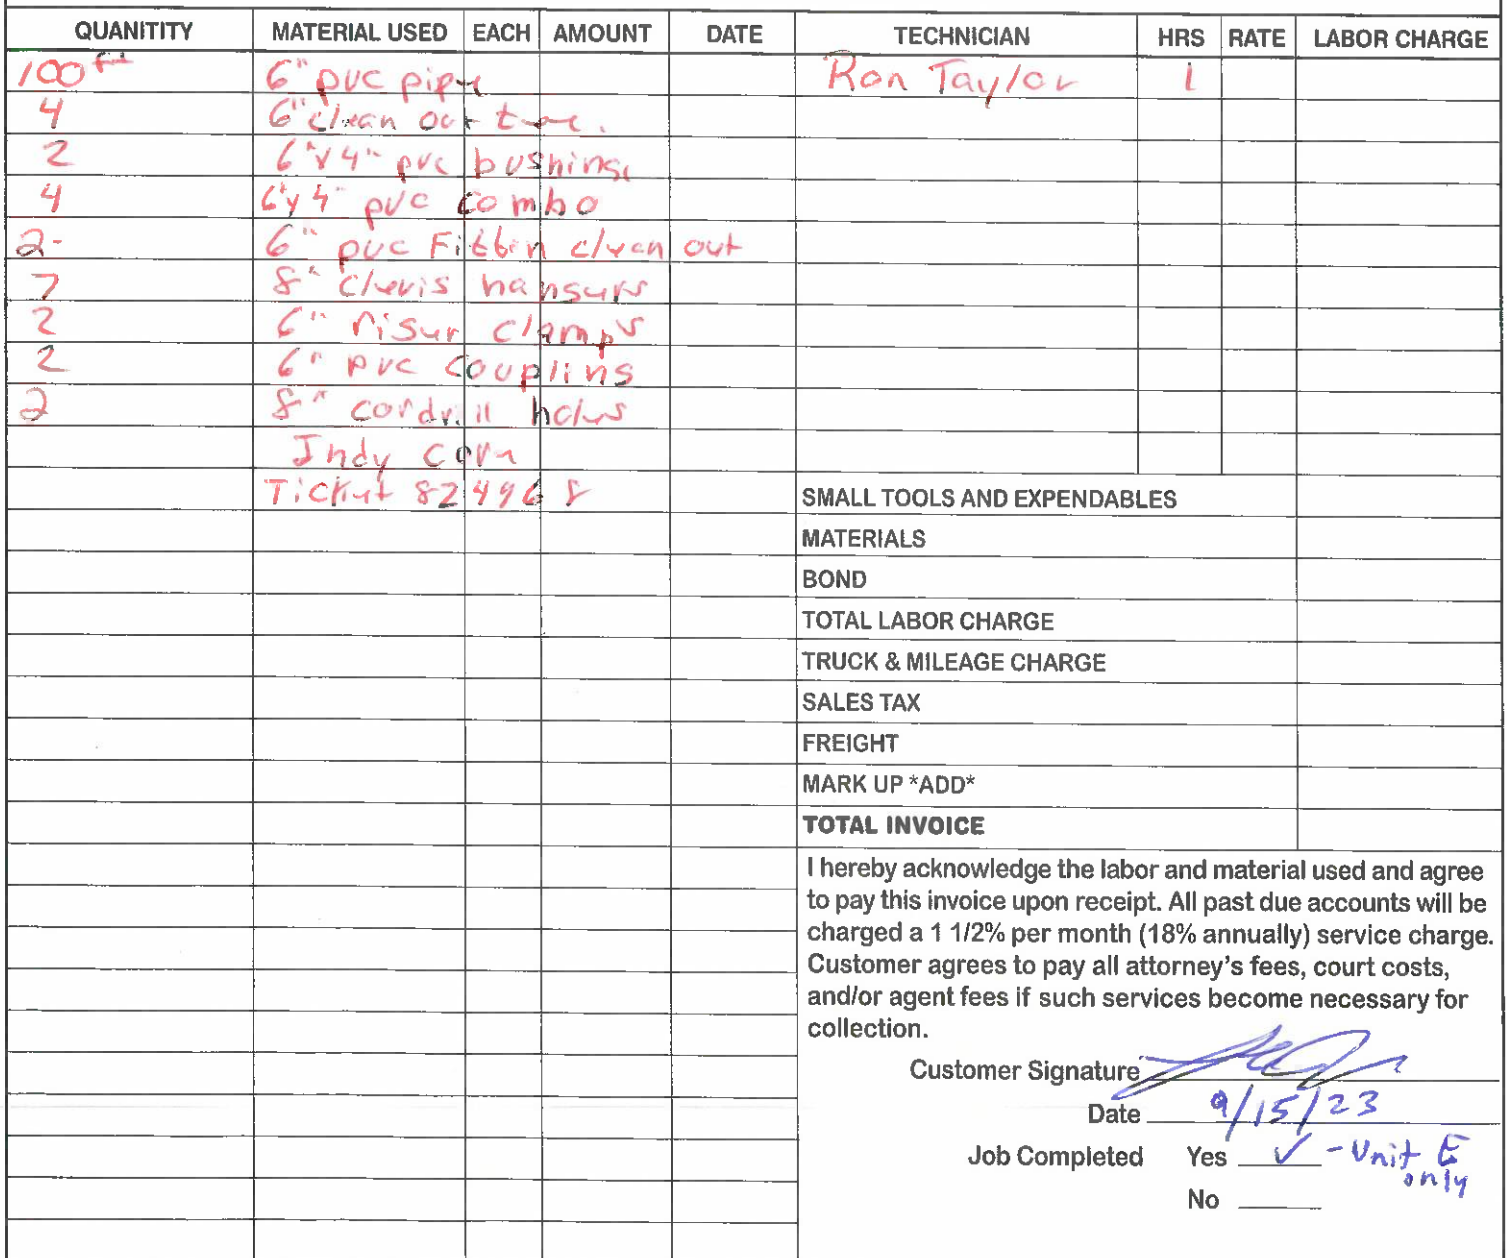 QUANITITY MATERIAL USED EACH AMOUNT DATE TECHNICIAN HRS RATE LABOR CHARGE
100 ft 6" pvc pipe Ron Taylor 1
4 6" clean out tee.
2 6"x4" pvc bushing
4 6"x4" pvc combo
2 6" pvc Fittin clean out
7 8" clevis hangers
2 6" riser clamps
2 6" pvc coupling
2 8" cordrill holes
Indy Corn
Ticket 824968
SMALL TOOLS AND EXPENDABLES
MATERIALS
BOND
TOTAL LABOR CHARGE
TRUCK & MILEAGE CHARGE
SALES TAX
FREIGHT
MARK UP *ADD*
TOTAL INVOICE
I hereby acknowledge the labor and material used and agree
to pay this invoice upon receipt. All past due accounts will be
charged a 1 1/2% per month (18% annually) service charge.
Customer agrees to pay all attorney's fees, court costs,
and/or agent fees if such services become necessary for
collection.
Customer Signature
Date 9/15/23
Job Completed Yes ✓ - Unit E
only
No